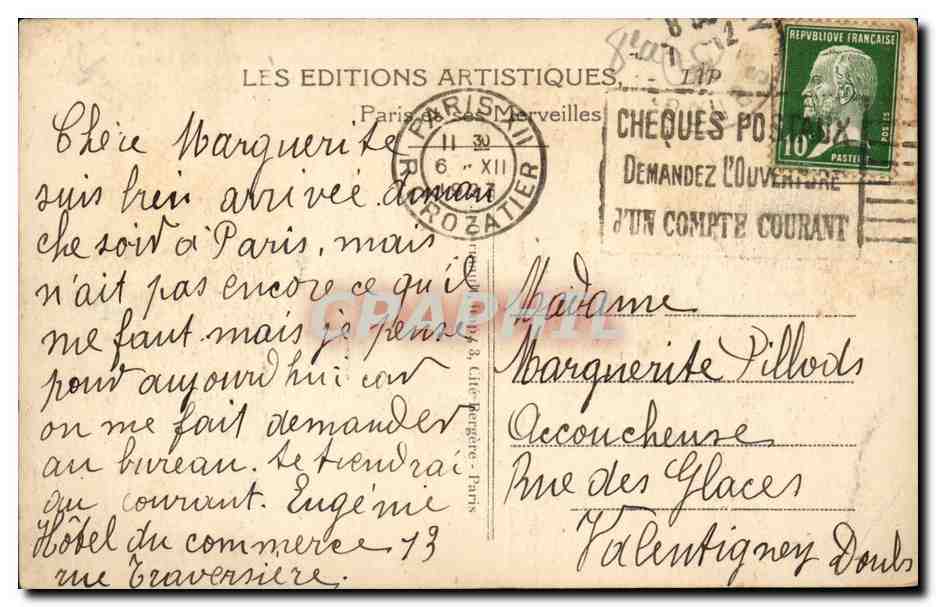 LES EDITIONS ARTISTIQUES, LIP
Paris et ses Merveilles
Chère Marguerite
suis bien arrivée diman
che soir à Paris, mais
n'ait pas encore ce qu'il
me faut mais je pense
pour aujourd hui car
on me fait demander
au bureau. te tiendrai
au courant. Eugénie
Hôtel du commerce 13
rue Traversière.
PARIS XII
11 30
6 XII
R. CROZATIER
CHEQUES POSTAUX
DEMANDEZ L'OUVERTURE
d'UN COMPTE COURANT
REPUBLIQUE FRANÇAISE
10c
POSTES
PASTEUR
3, Cité Bergère - Paris
Madame
Marguerite Pillods
Accoucheuse
Rue des Glaces
Valentigney Doubs
CPAPHIL